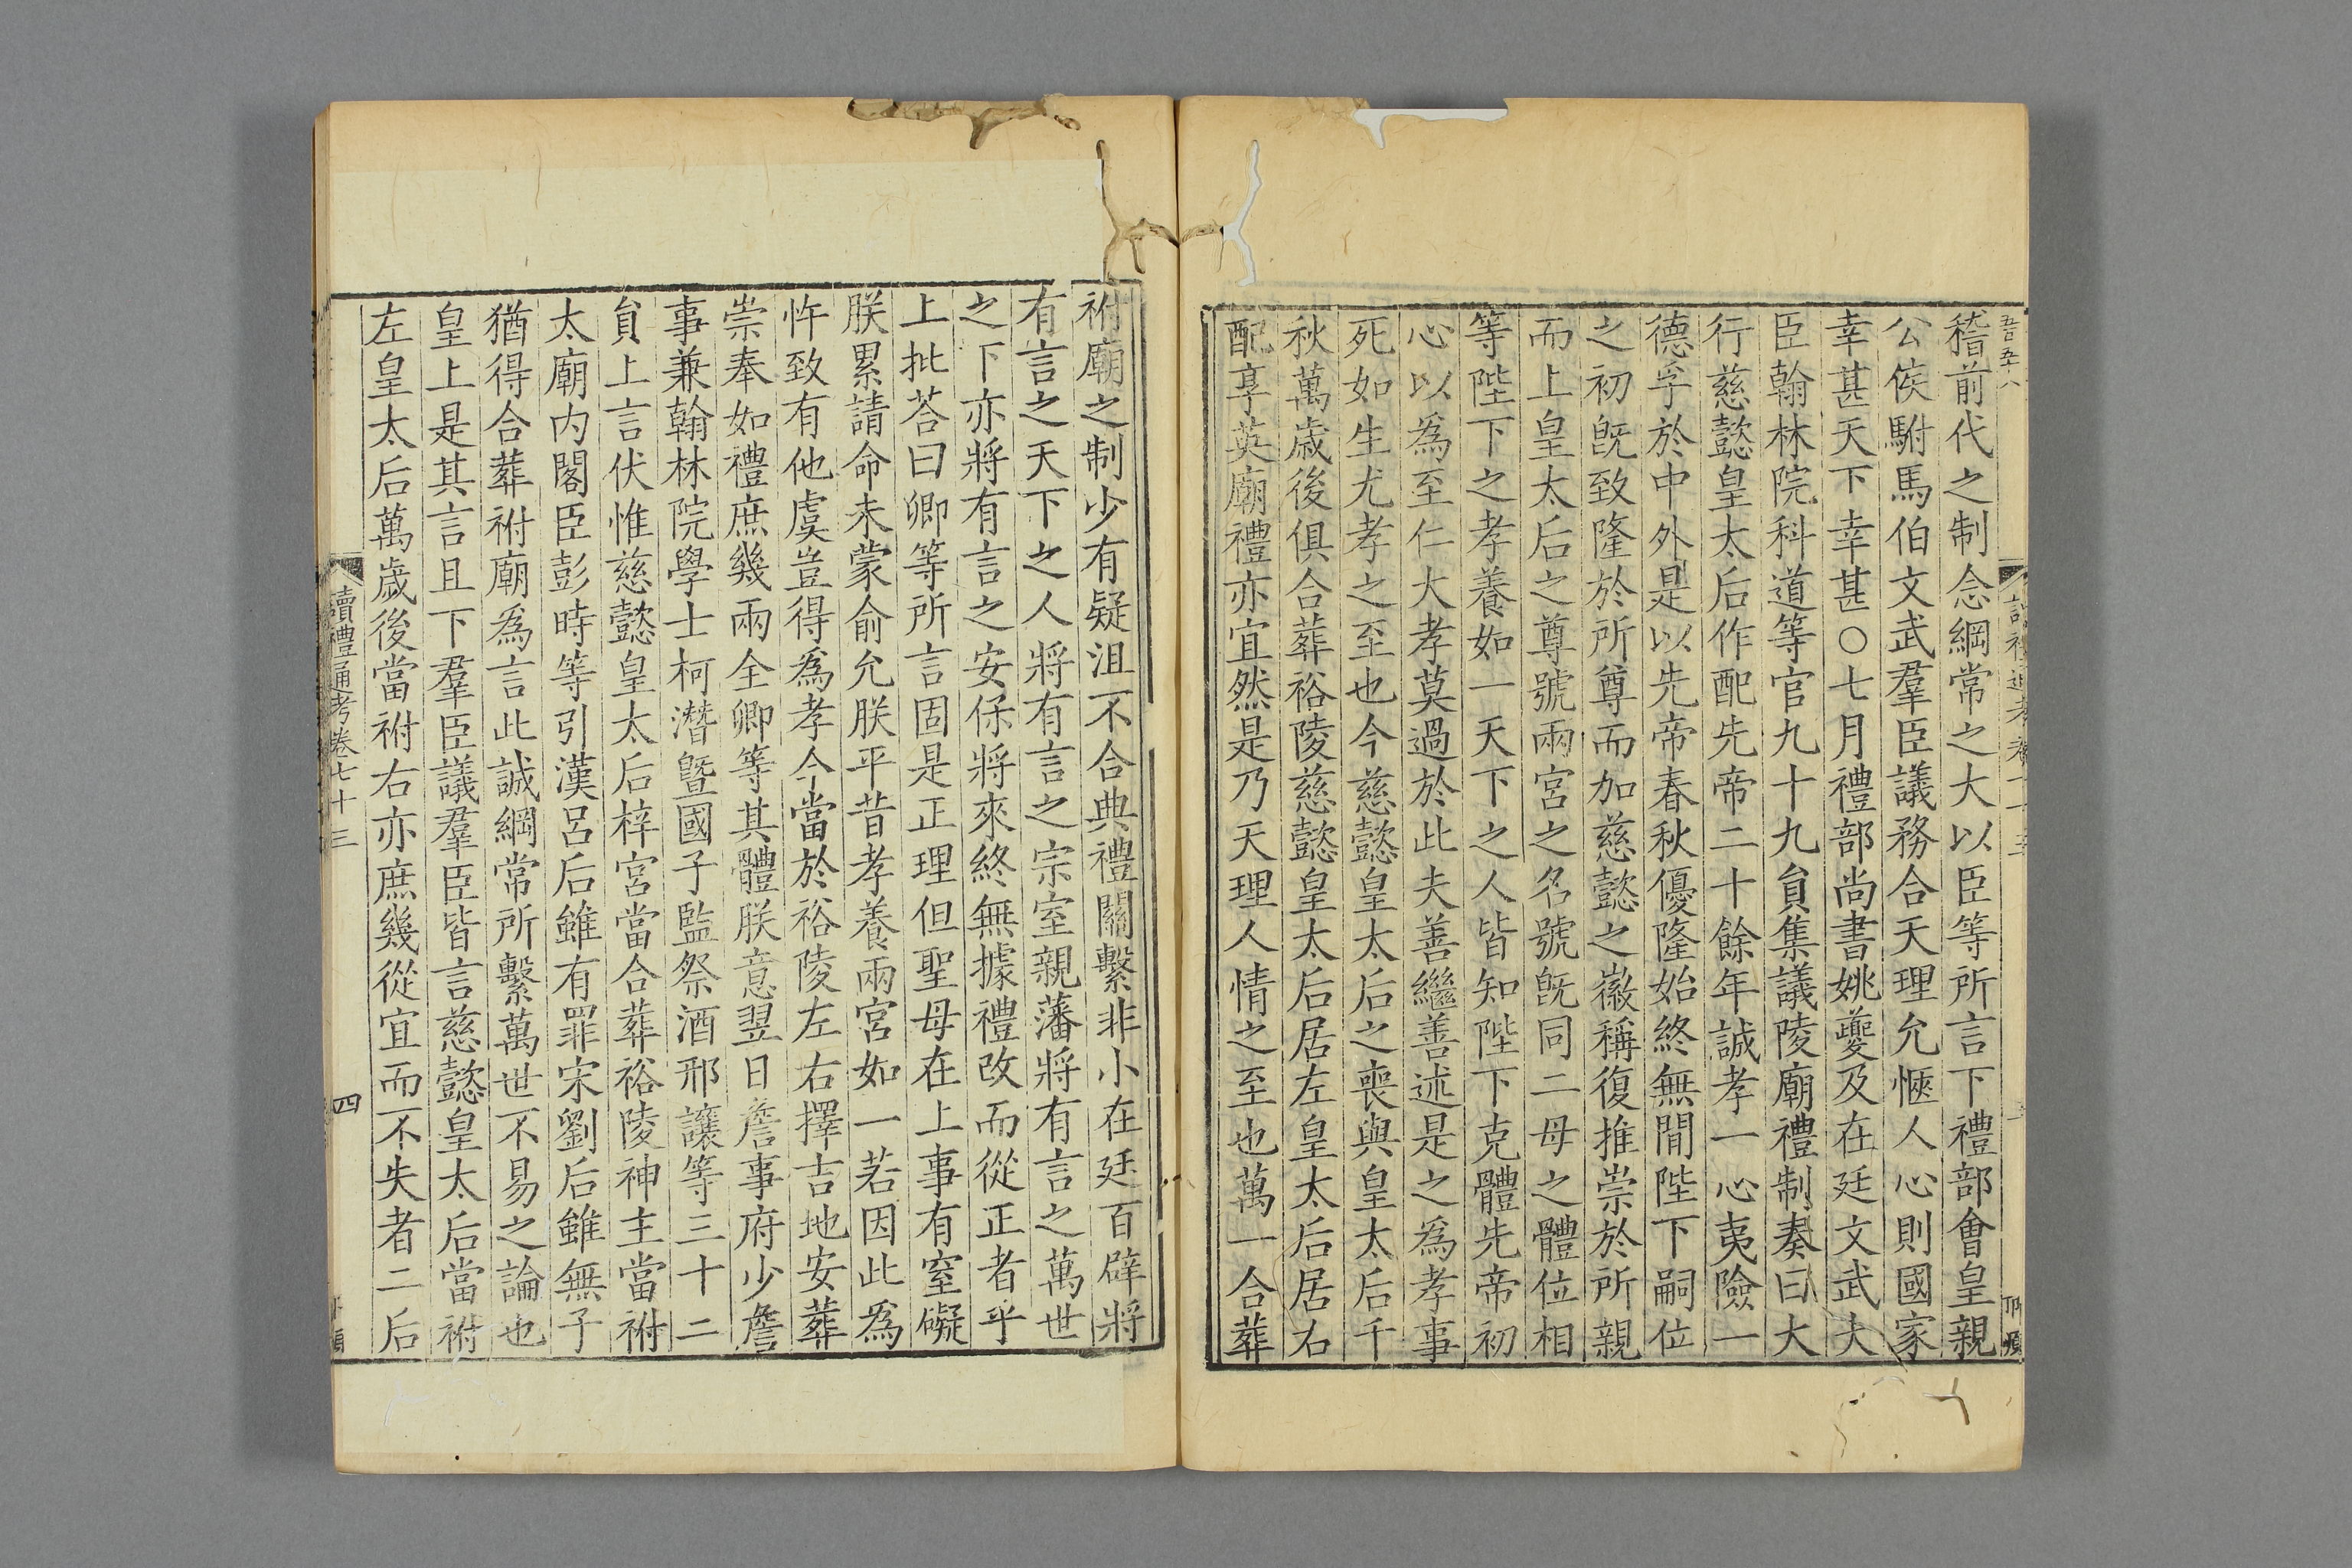 稽前代之制念綱常之大以臣等所言下禮部會皇親
公侯駙馬伯文武羣臣議務合天理允愜人心則國家
幸甚天下幸甚○七月禮部尚書姚夔及在廷文武大
臣翰林院科道等官九十九員集議陵廟禮制奏曰大
行慈懿皇太后作配先帝二十餘年誠孝一心夷險一
德孚於中外是以先帝春秋優隆始終無閒陛下嗣位
之初旣致隆於所尊而加慈懿之徽稱復推崇於所親
而上皇太后之尊號兩宮之名號旣同二母之體位相
等陛下之孝養如一天下之人皆知陛下克體先帝初
心以為至仁大孝莫過於此夫善繼善述是之為孝事
死如生尤孝之至也今慈懿皇太后之喪與皇太后千
秋萬歲後俱合葬裕陵慈懿皇太后居左皇太后居右
配享英廟禮亦宜然是乃天理人情之至也萬一合葬
祔廟之制少有疑沮不合典禮關繫非小在廷百辟將
有言之天下之人將有言之宗室親藩將有言之萬世
之下亦將有言之安保將來終無據禮改而從正者乎
上批荅曰卿等所言固是正理但聖母在上事有窒礙
朕累請命未蒙俞允朕平昔孝養兩宮如一若因此為
忤致有他虞豈得為孝今當於裕陵左右擇吉地安葬
崇奉如禮庶幾兩全卿等其體朕意翌日詹事府少詹
事兼翰林院學士柯潛曁國子監祭酒邢讓等三十二
員上言伏惟慈懿皇太后梓宮當合葬裕陵神主當祔
太廟内閣臣彭時等引漢呂后雖有罪宋劉后雖無子
猶得合葬祔廟為言此誠綱常所繫萬世不易之論也
皇上是其言且下羣臣議羣臣皆言慈懿皇太后當祔
左皇太后萬歲後當祔右亦庶幾從宜而不失者二后
讀禮通考卷七十三
四